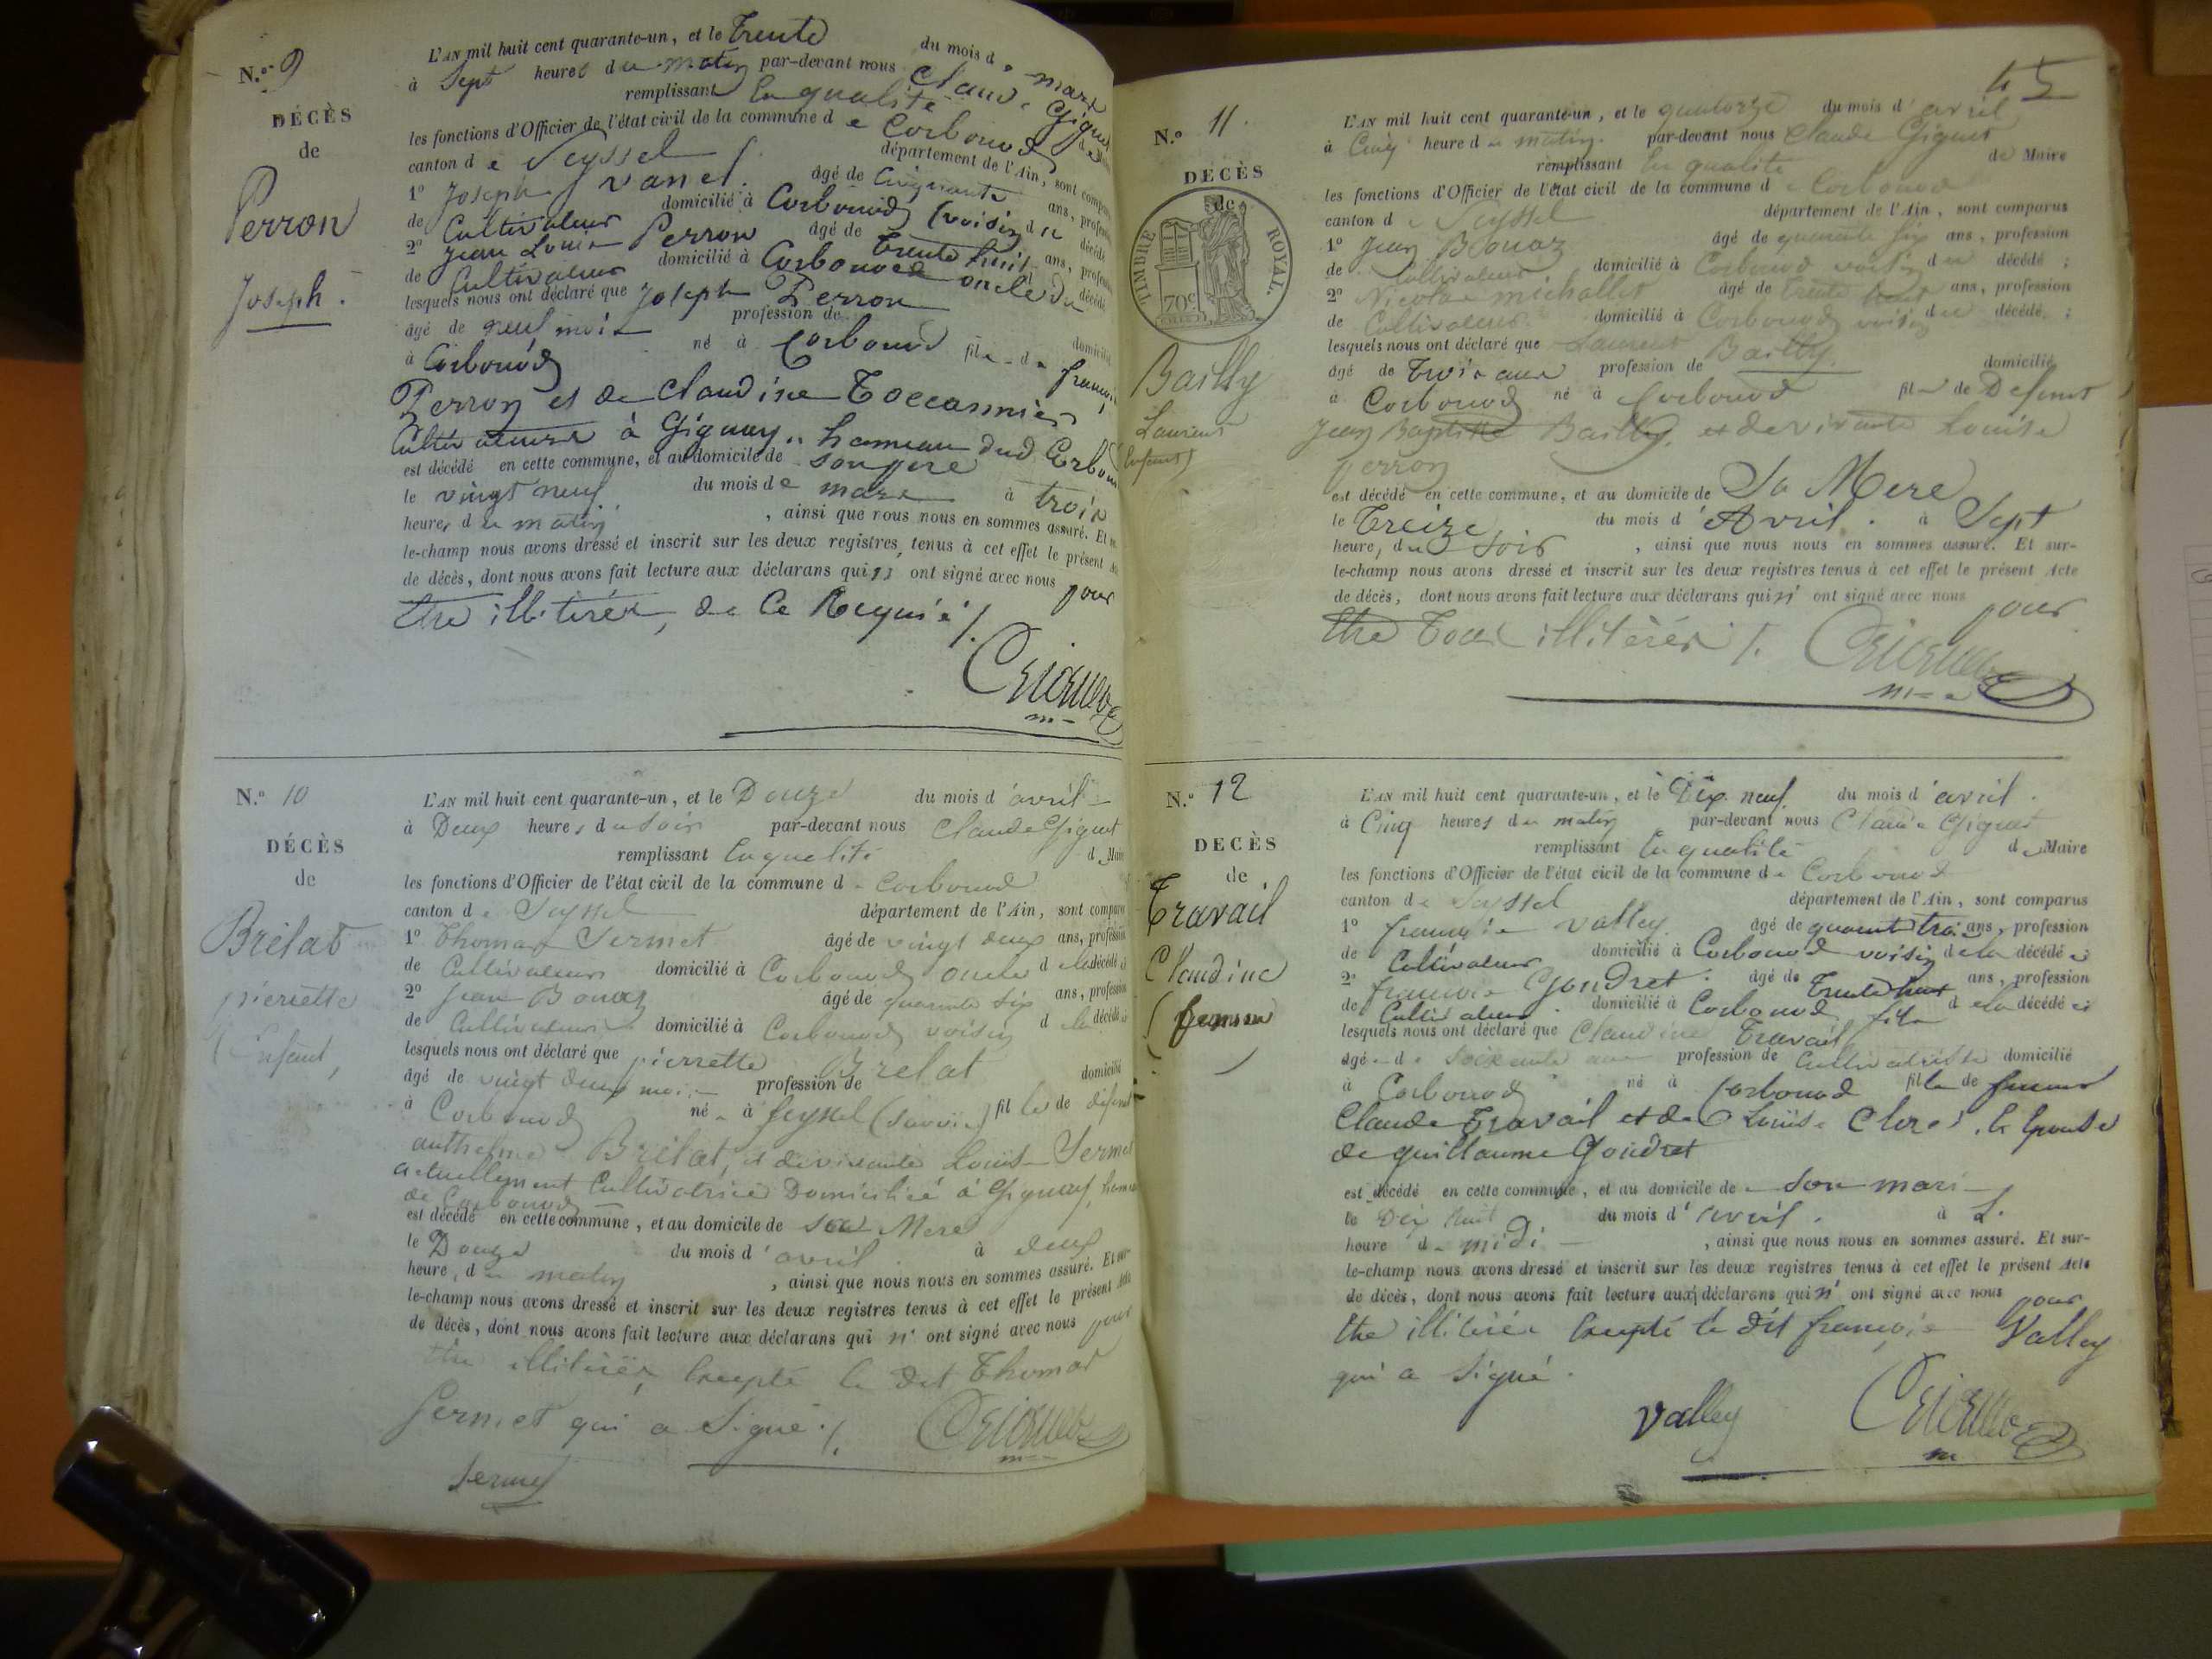 N.º 9
DÉCÈS
de
Perron
Joseph.
L'AN mil huit cent quarante-un, et le Trente du mois de mars
à Sept heures du matin par-devant nous Claude Giguet
remplissant En qualité de
les fonctions d'Officier de l'état civil de la commune de Corbonod
canton de Seyssel département de l'Ain, sont comparus
1º Joseph Vanel. âgé de Cinquante ans, profession
de Cultivateur domicilié à Corbonod (voisin du décédé
2º Jean Louis Perron âgé de Trente huit ans, profession
de Cultivateur domicilié à Corbonod oncle du décédé
lesquels nous ont déclaré que Joseph Perron
âgé de neuf mois profession de domicilié
à Corbonod né à Corbonod fils de françois
Perron et de Claudine Toccannier
Cultivateurs à Gignay, hameau dud Corbonod
est décédé en cette commune, et au domicile de son père
le vingt neuf du mois de mars à trois
heures du matin, ainsi que nous nous en sommes assuré. Et sur-
le-champ nous avons dressé et inscrit sur les deux registres, tenus à cet effet le présent Acte
de décès, dont nous avons fait lecture aux déclarans qui n' ont signé avec nous pour
être illitérés, de Ce Requis /.
N.º 10
DÉCÈS
de
Brélat
pierrette
(Enfant)
L'AN mil huit cent quarante-un, et le Douze du mois d'avril
à Deux heures du soir par-devant nous Claude Giguet
remplissant En qualité de Maire
les fonctions d'Officier de l'état civil de la commune de Corbonod
canton de Seyssel département de l'Ain, sont comparus
1º Thomas Sermet âgé de vingt deux ans, profession
de Cultivateur domicilié à Corbonod oncle de la décédée
2º Jean Bouaz âgé de quarante six ans, profession
de Cultivateur domicilié à Corbonod voisin de la décédée
lesquels nous ont déclaré que pierrette Brélat
âgé de vingt deux mois profession de domicilié
à Corbonod né à Seyssel (Savoie) fille de défunt
anthelme Brélat, et de vivante Louise Sermet
actuellement Cultivatrice Domiciliée à Gignay, hameau
de Corbonod
est décédé en cette commune, et au domicile de sa Mere
le Douze du mois d'avril à deux
heures du matin, ainsi que nous nous en sommes assuré. Et sur-
le-champ nous avons dressé et inscrit sur les deux registres tenus à cet effet le présent Acte
de décès, dont nous avons fait lecture aux déclarans qui n' ont signé avec nous pour
être illitérés, Excepté le dit Thomas
Sermet qui a Signé /.
Sermet
45
N.º 11.
DÉCÈS
de
TIMBRE ROYAL.
70c
Bailly
Laurent
(Enfant)
L'AN mil huit cent quarante-un, et le quatorze du mois d'avril
à Cinq heures du matin. par-devant nous Claude Giguet
remplissant En qualité de Maire
les fonctions d'Officier de l'état civil de la commune de Corbonod
canton de Seyssel département de l'Ain, sont comparus
1º Jean Bouaz âgé de quarante six ans, profession
de Cultivateur. domicilié à Corbonod voisin du décédé;
2º Nicolas michallet âgé de trente huit ans, profession
de Cultivateur. domicilié à Corbonod voisin du décédé;
lesquels nous ont déclaré que Laurent Bailly.
âgé de Trois ans profession de domicilié
à Corbonod né à Corbonod fils de Defunt
Jean Baptiste Bailly, et de vivante Louise
perron
est décédé en cette commune, et au domicile de Sa Mere
le Treize du mois d'Avril. à Sept
heures du soir, ainsi que nous nous en sommes assuré. Et sur-
le-champ nous avons dressé et inscrit sur les deux registres tenus à cet effet le présent Acte
de décès, dont nous avons fait lecture aux déclarans qui n' ont signé avec nous pour
être Tous illitérés /.
N.º 12
DECÈS
de
Travail
Claudine
(femme)
L'AN mil huit cent quarante-un, et le Dix neuf du mois d'avril.
à Cinq heures du matin par-devant nous Claude Giguet
remplissant En qualité de Maire
les fonctions d'Officier de l'état civil de la commune de Corbonod
canton de Seyssel département de l'Ain, sont comparus
1º françois Valley. âgé de quarante trois ans, profession
de Cultivateur domicilié à Corbonod voisin de la décédée
2º françois Gondret. âgé de Trente huit ans, profession
de Cultivateur. domicilié à Corbonod fils de la décédée
lesquels nous ont déclaré que Claudine Travail
âgée de Soixante ans profession de Cultivatrice domicilié
à Corbonod né à Corbonod fille de
Claude Travail et de Louise Clerc, Epouse
de guillaume Gondret
est décédé en cette commune, et au domicile de son mari
le Dix huit du mois d'avril. à L'
heure de midi, ainsi que nous nous en sommes assuré. Et sur-
le-champ nous avons dressé et inscrit sur les deux registres tenus à cet effet le présent Acte
de décès, dont nous avons fait lecture aux déclarans qui n' ont signé avec nous pour
être illitérés Excepté le dit françois Valley
qui a Signé.
Valley